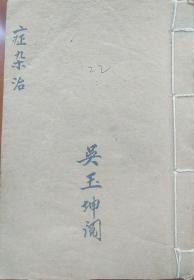 症杂治
22
吳玉坤阅